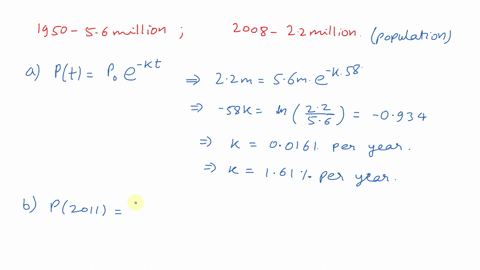 1950 - 5.6 million ; 2008 - 2.2 million. (population)
a) P(t) = P₀ e^{-Kt} ⇒ 2.2m = 5.6m. e^{-K.58}
⇒ -58K = ln(2.2/5.6) = -0.934
⇒ K = 0.0161 per year.
⇒ K = 1.61% per year.
b) P(2011) =